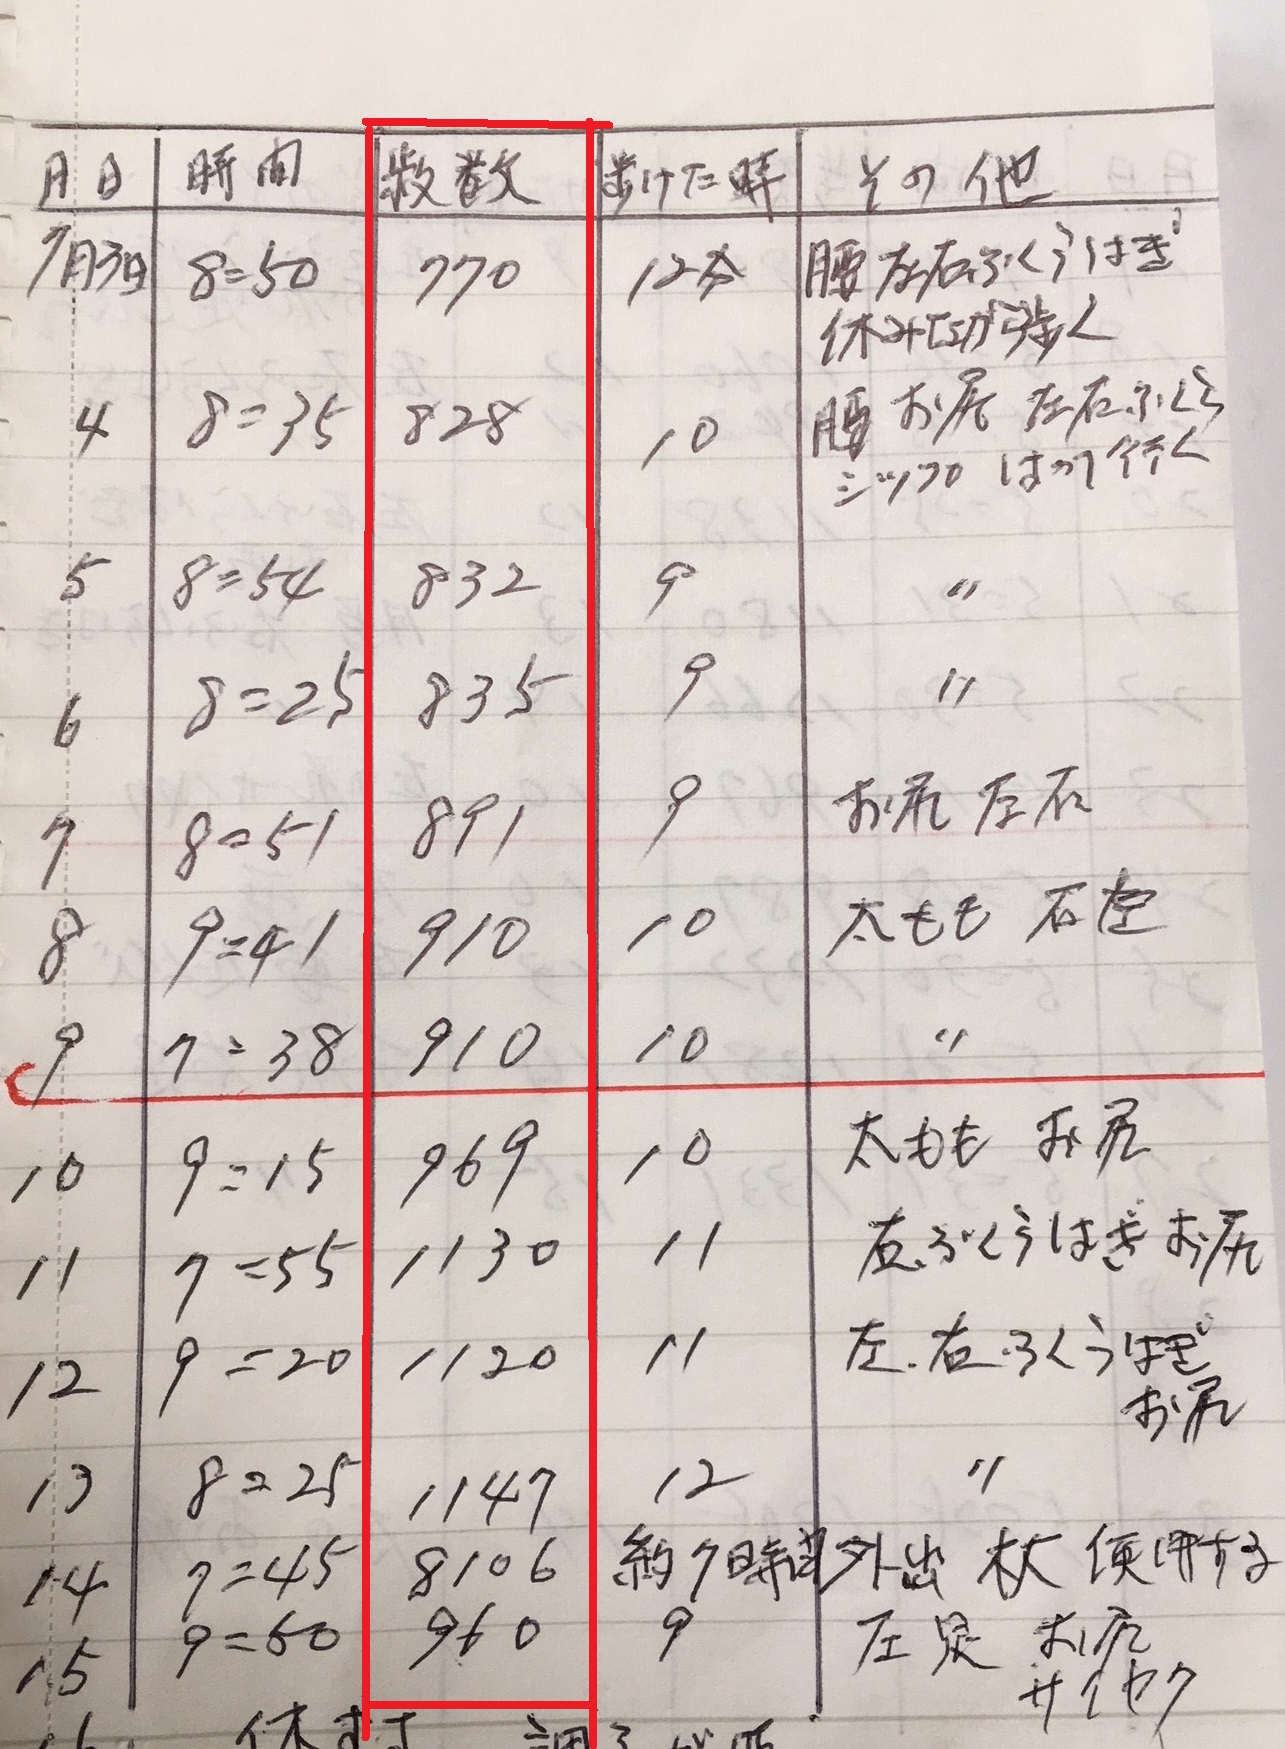 月日 時間 歩数 歩けた時 その他
7月3日 8=50 770 12分 腰 左右ふくらはぎ
休みながら歩く
4 8=35 828 10 腰 お尻 左右ふくら
シップ はって行く
5 8=54 832 9 〃
6 8=25 835 9 〃
7 8=51 891 9 お尻 左右
8 9=41 910 10 太もも 右左
9 7=38 910 10 〃
10 9=15 969 10 太もも お尻
11 7=55 1130 11 右ふくらはぎ お尻
12 9=20 1120 11 左.右ふくらはぎ
お尻
13 8=25 1147 12 〃
14 7=45 8106 約7時間 外出 杖 使用する
15 9=50 960 9 左足 お尻
16 休ます